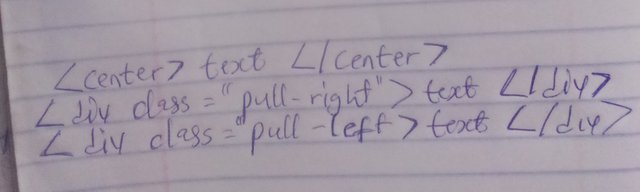 <center> text </center>
<div class="pull-right"> text </div>
<div class="pull-left> text </div>